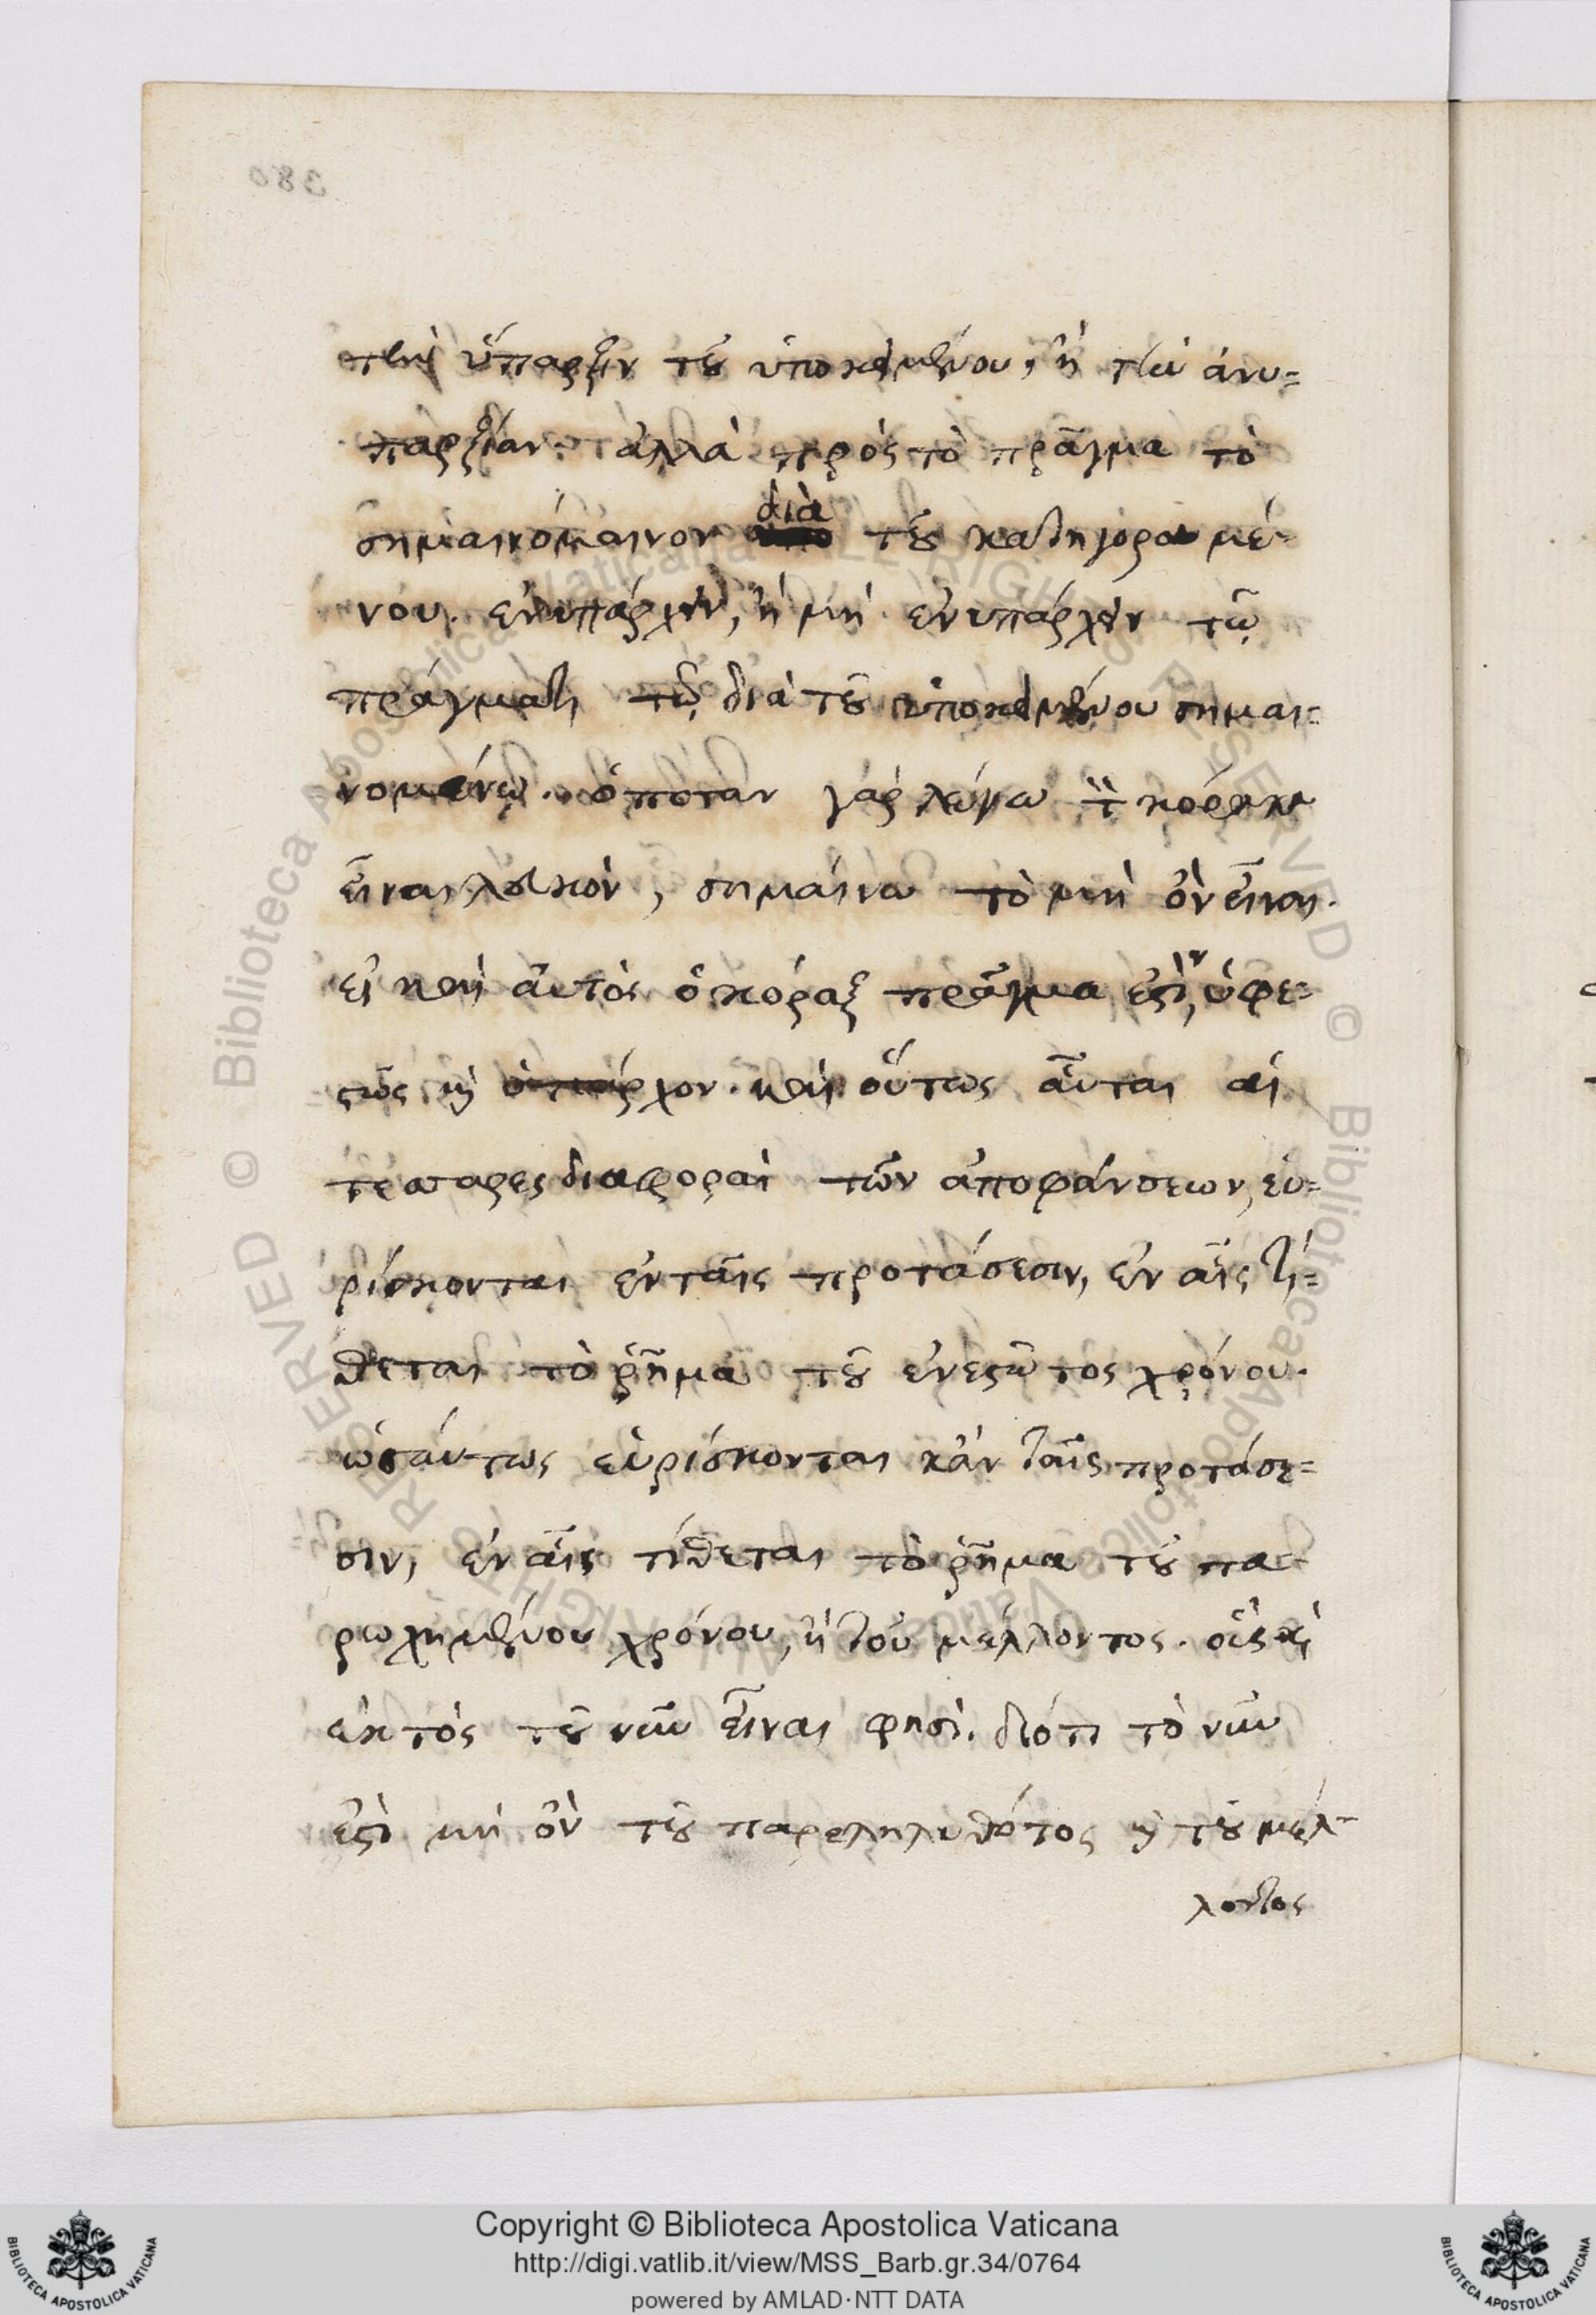 τὴν ὕπαρξιν τοῦ ὑποκειμένου, ἢ τὴν ἀνυ=
παρξίαν· ἀλλὰ πρὸς τὸ πρᾶγμα τὸ
σημαινόμαινον διὰ τοῦ κατηγορου μέ-
νου. ἐνυπάρχειν, ἢ μὴ ἐνυπάρχειν τῷ
πράγματι τῷ διὰ τοῦ ὑποκειμένου σημαι=
νομένῳ. ὁπόταν γὰρ λέγω τὸν κόρακα
εἶναι λευκὸν, σημαίνω τὸ μὴ ὂν εἶναι.
εἰ καὶ αὐτὸς ὁ κόραξ πρᾶγμα ἐστὶν, ὑφε=
στὼς καὶ ὑπάρχον. καὶ οὕτως αὗται αἱ
τέσσαρες διαφοραὶ τῶν ἀποφάνσεων, εὑ=
ρίσκονται ἐν ταῖς προτάσεσιν, ἐν αἷς τί=
θεται τὸ ῥῆμα τοῦ ἐνεστῶτος χρόνου.
ὡσαύτως εὑρίσκονται κἀν ταῖς προτάσε=
σιν, ἐν αἷς τίθεται τὸ ῥῆμα τοῦ πα-
ρωχημένου χρόνου, ἢ τοῦ μέλλοντος.
ἐκτὸς τοῦ νῦν εἶναι φησὶ. διότι τὸ νῦν
ἐστὶ μὴ ὂν τοῦ παρεληλυθότος καὶ τοῦ μέλ-
λοντος
© Biblioteca Apostolica Vaticana ALL RIGHTS RESERVED
Copyright © Biblioteca Apostolica Vaticana
http://digi.vatlib.it/view/MSS_Barb.gr.34/0764
powered by AMLAD·NTT DATA
BIBLIOTECA APOSTOLICA VATICANA
BIBLIOTECA APOSTOLICA VATICANA